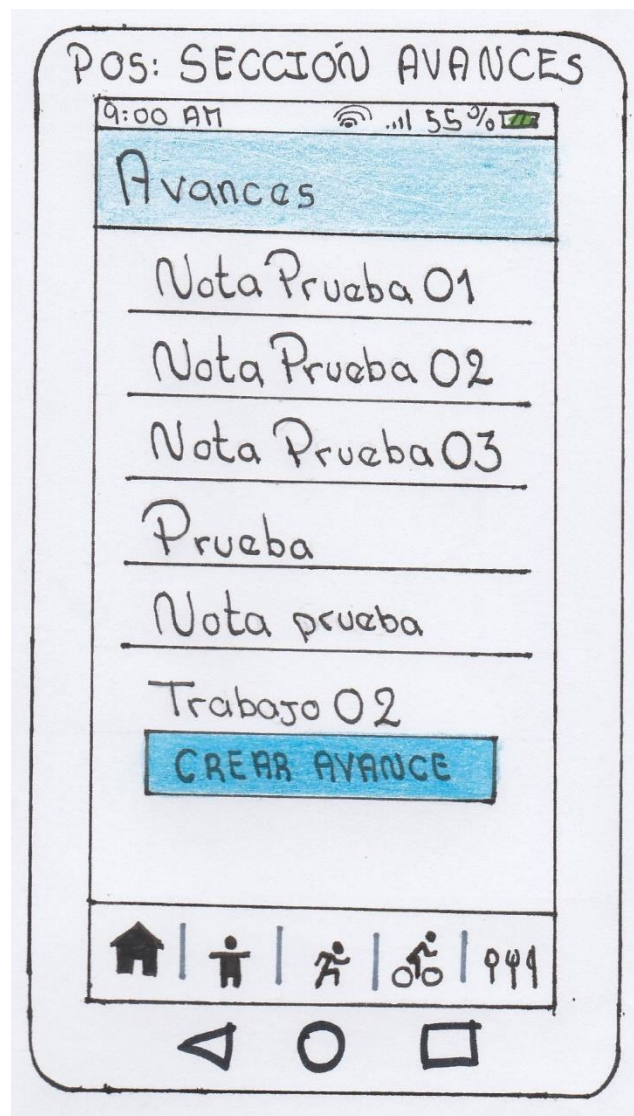 POS: SECCIÓN AVANCES
9:00 AM 55%
Avances
Nota Prueba 01
Nota Prueba 02
Nota Prueba 03
Prueba
Nota prueba
Trabajo 02
CREAR AVANCE